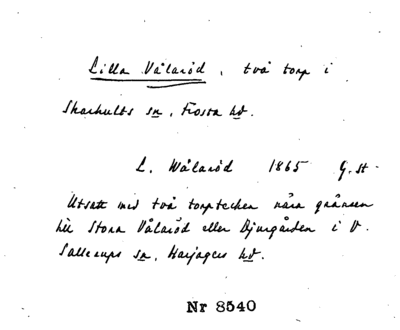 Lilla Vålaröd, två torp i
Skarhults sn, Frosta hd.
L. Wålaröd 1865 G. st.
Utsatt med två torptecken nära gränsen
till Stora Vålaröd eller Djurgården i V.
Sallerups sn, Harjagers hd.
Nr 8540